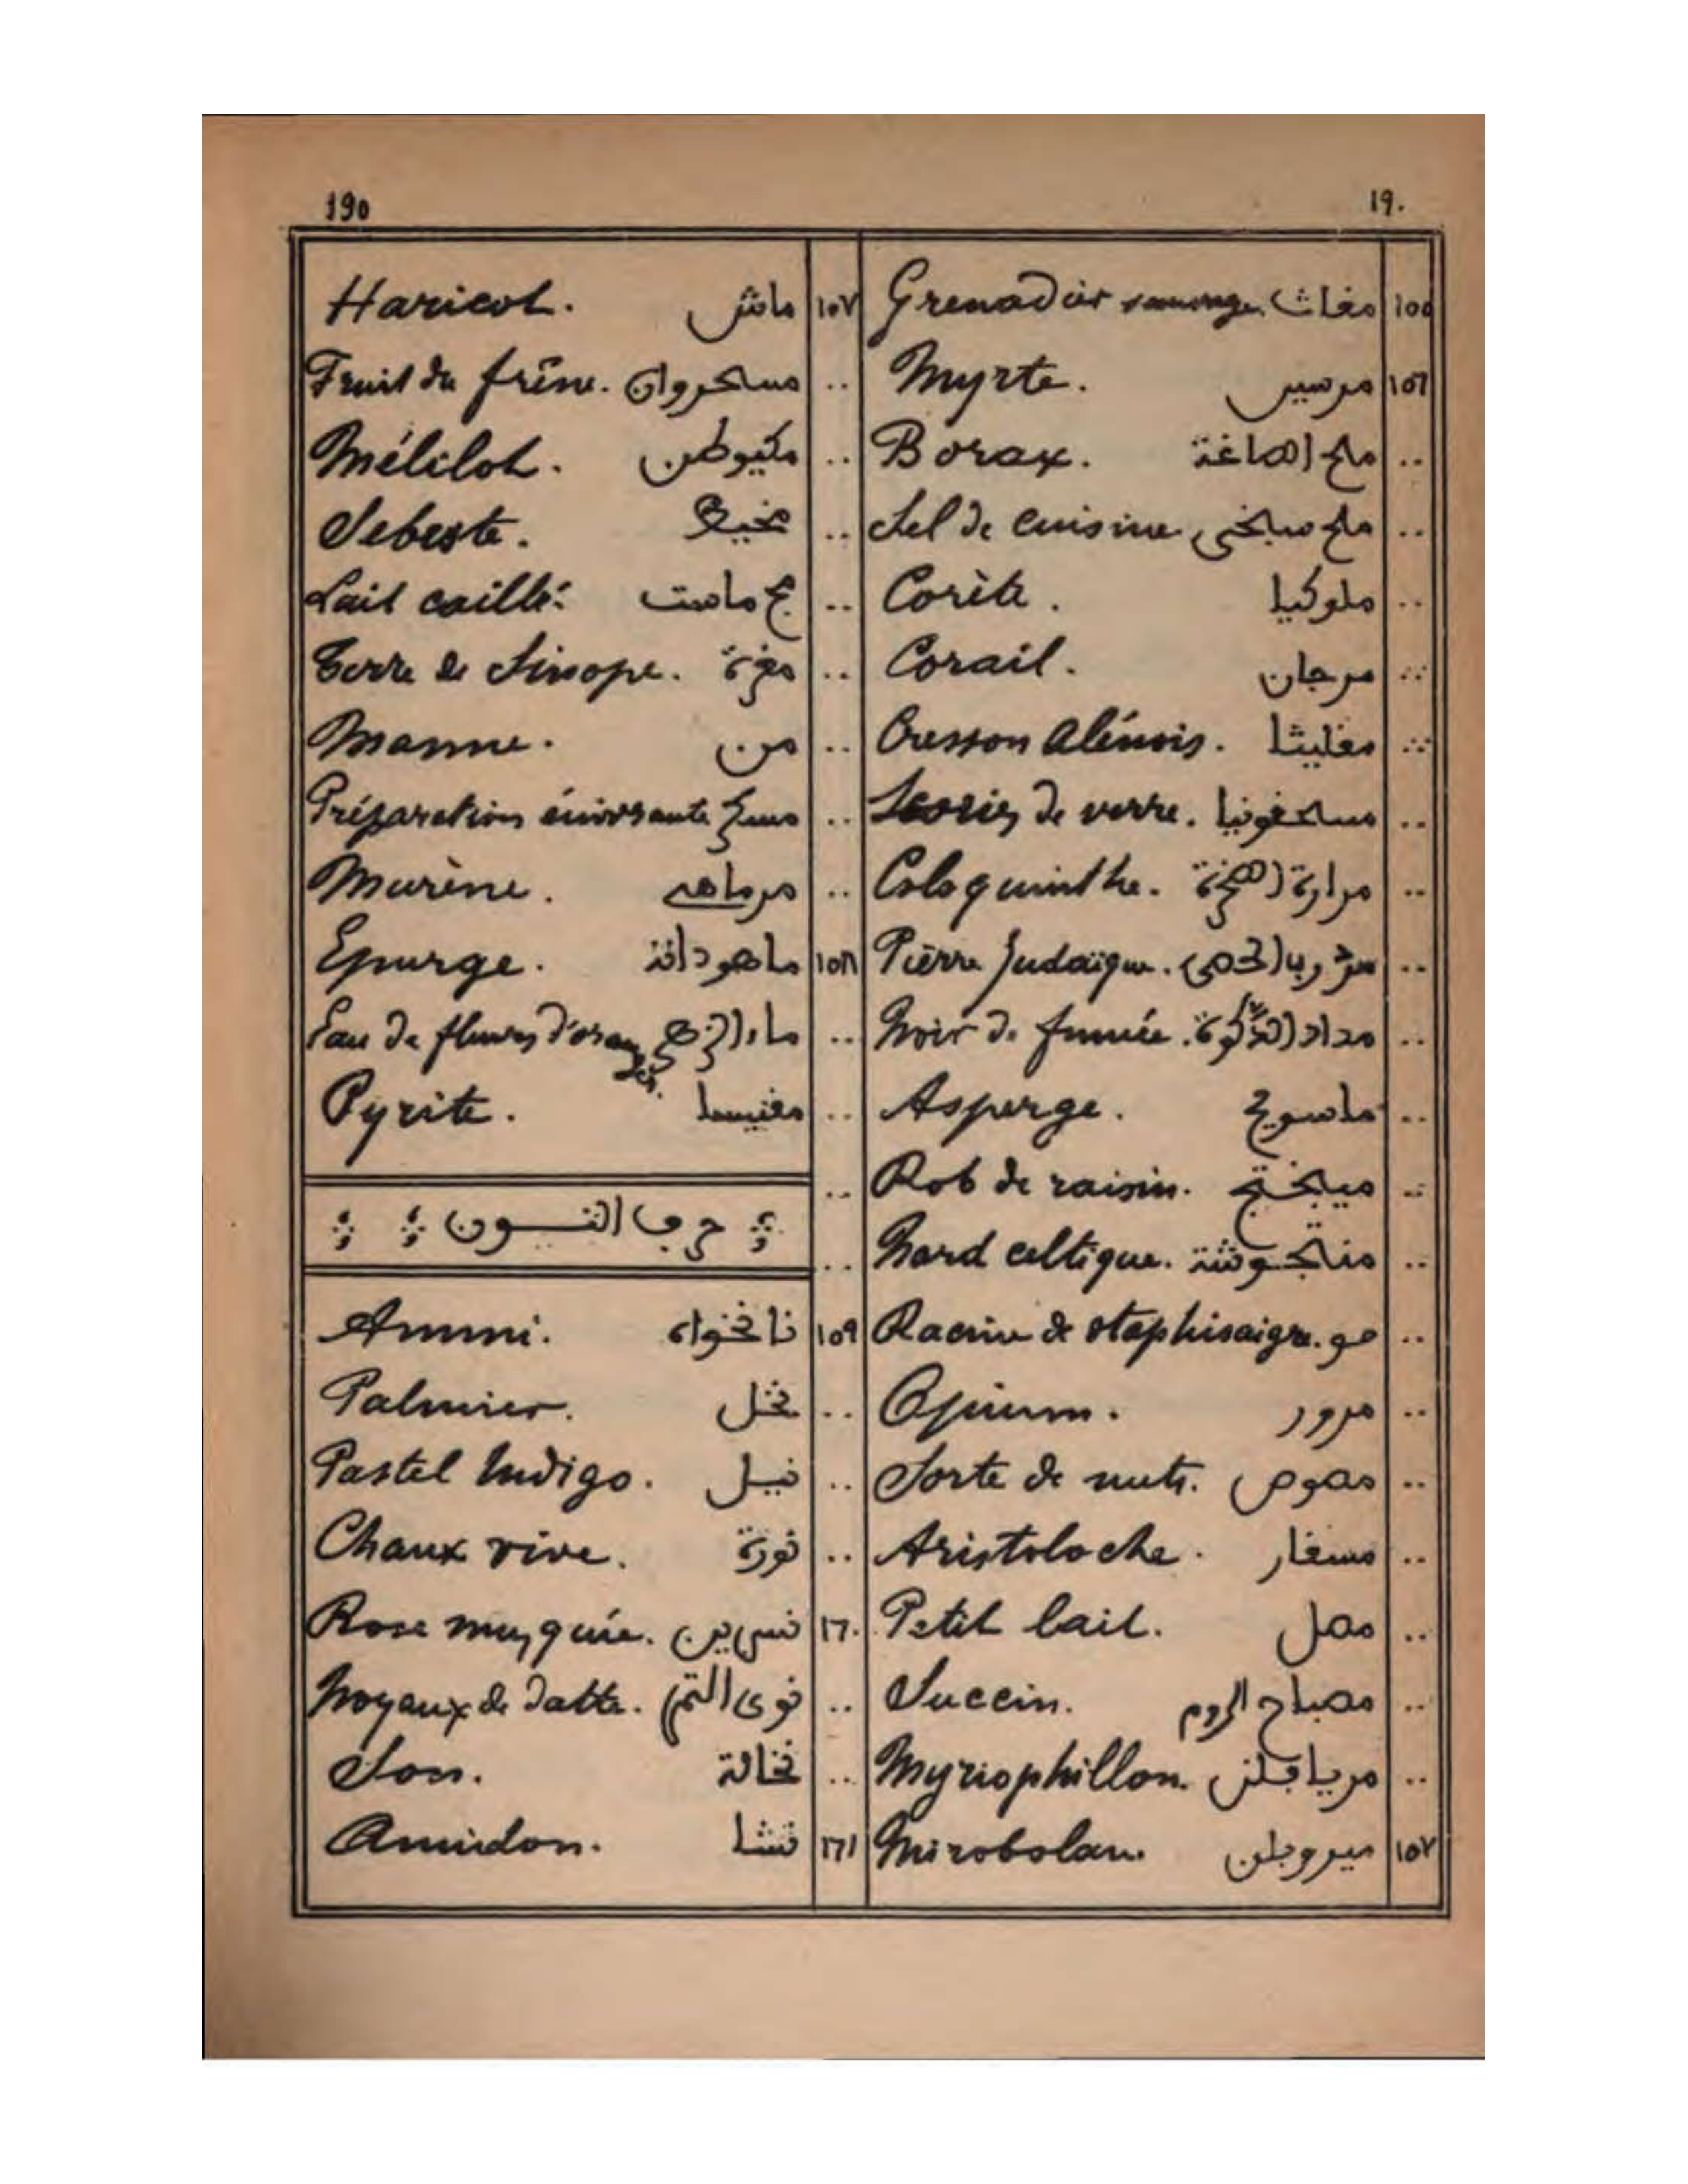 190
١٩٠
١٥٥ مغاث Grenadier sauvage.
١٥٦ مرسين Myrte.
.. ملح الصاغة Borax.
.. ملح سبخى Sel de cuisine
.. ملوكيا Corète.
.. مرجان Corail.
.. مغليثا Cresson alénois.
.. مسحقونيا Scories de verre.
.. مرارة الصخرة Coloquinthe.
.. Pierre judaïque.
.. مداد Noir de fumée.
.. ماسويج Asperge.
.. ميبختج Rob de raisin.
.. منجوشة Nard celtique.
.. مو Racine de staphisaigre.
.. مرور Opium.
.. مصوص Sorte de mets.
.. مسفار Aristoloche.
.. مصل Petit lait.
.. مصباح الروم Succin.
.. مريافلن Myriophillon.
١٥٧ ميروبلن Mirobolan.
١٥٧ ماش Haricot.
.. مسحروان Fruit du frêne.
.. مكيوطن Mélilot.
.. مخيط Sebeste.
.. ماست Lait caillé.
.. مغرة Terre de Sinope.
.. من Manne.
.. مسح Préparation énivrante
.. مرماهى Murène.
١٥٨ ماهودانة Epurge.
.. ماء الزهر Eau de fleurs d'oranger.
.. مغنيسا Pyrite.
حرف النون
١٥٩ نانخواه Ammi.
.. نخل Palmier.
.. نيل Pastel Indigo.
.. نورة Chaux vive.
١٦٠ نسرين Rose musquée.
.. نوى التمر Noyaux de datte.
.. نخالة Son.
١٦١ نشا Amidon.